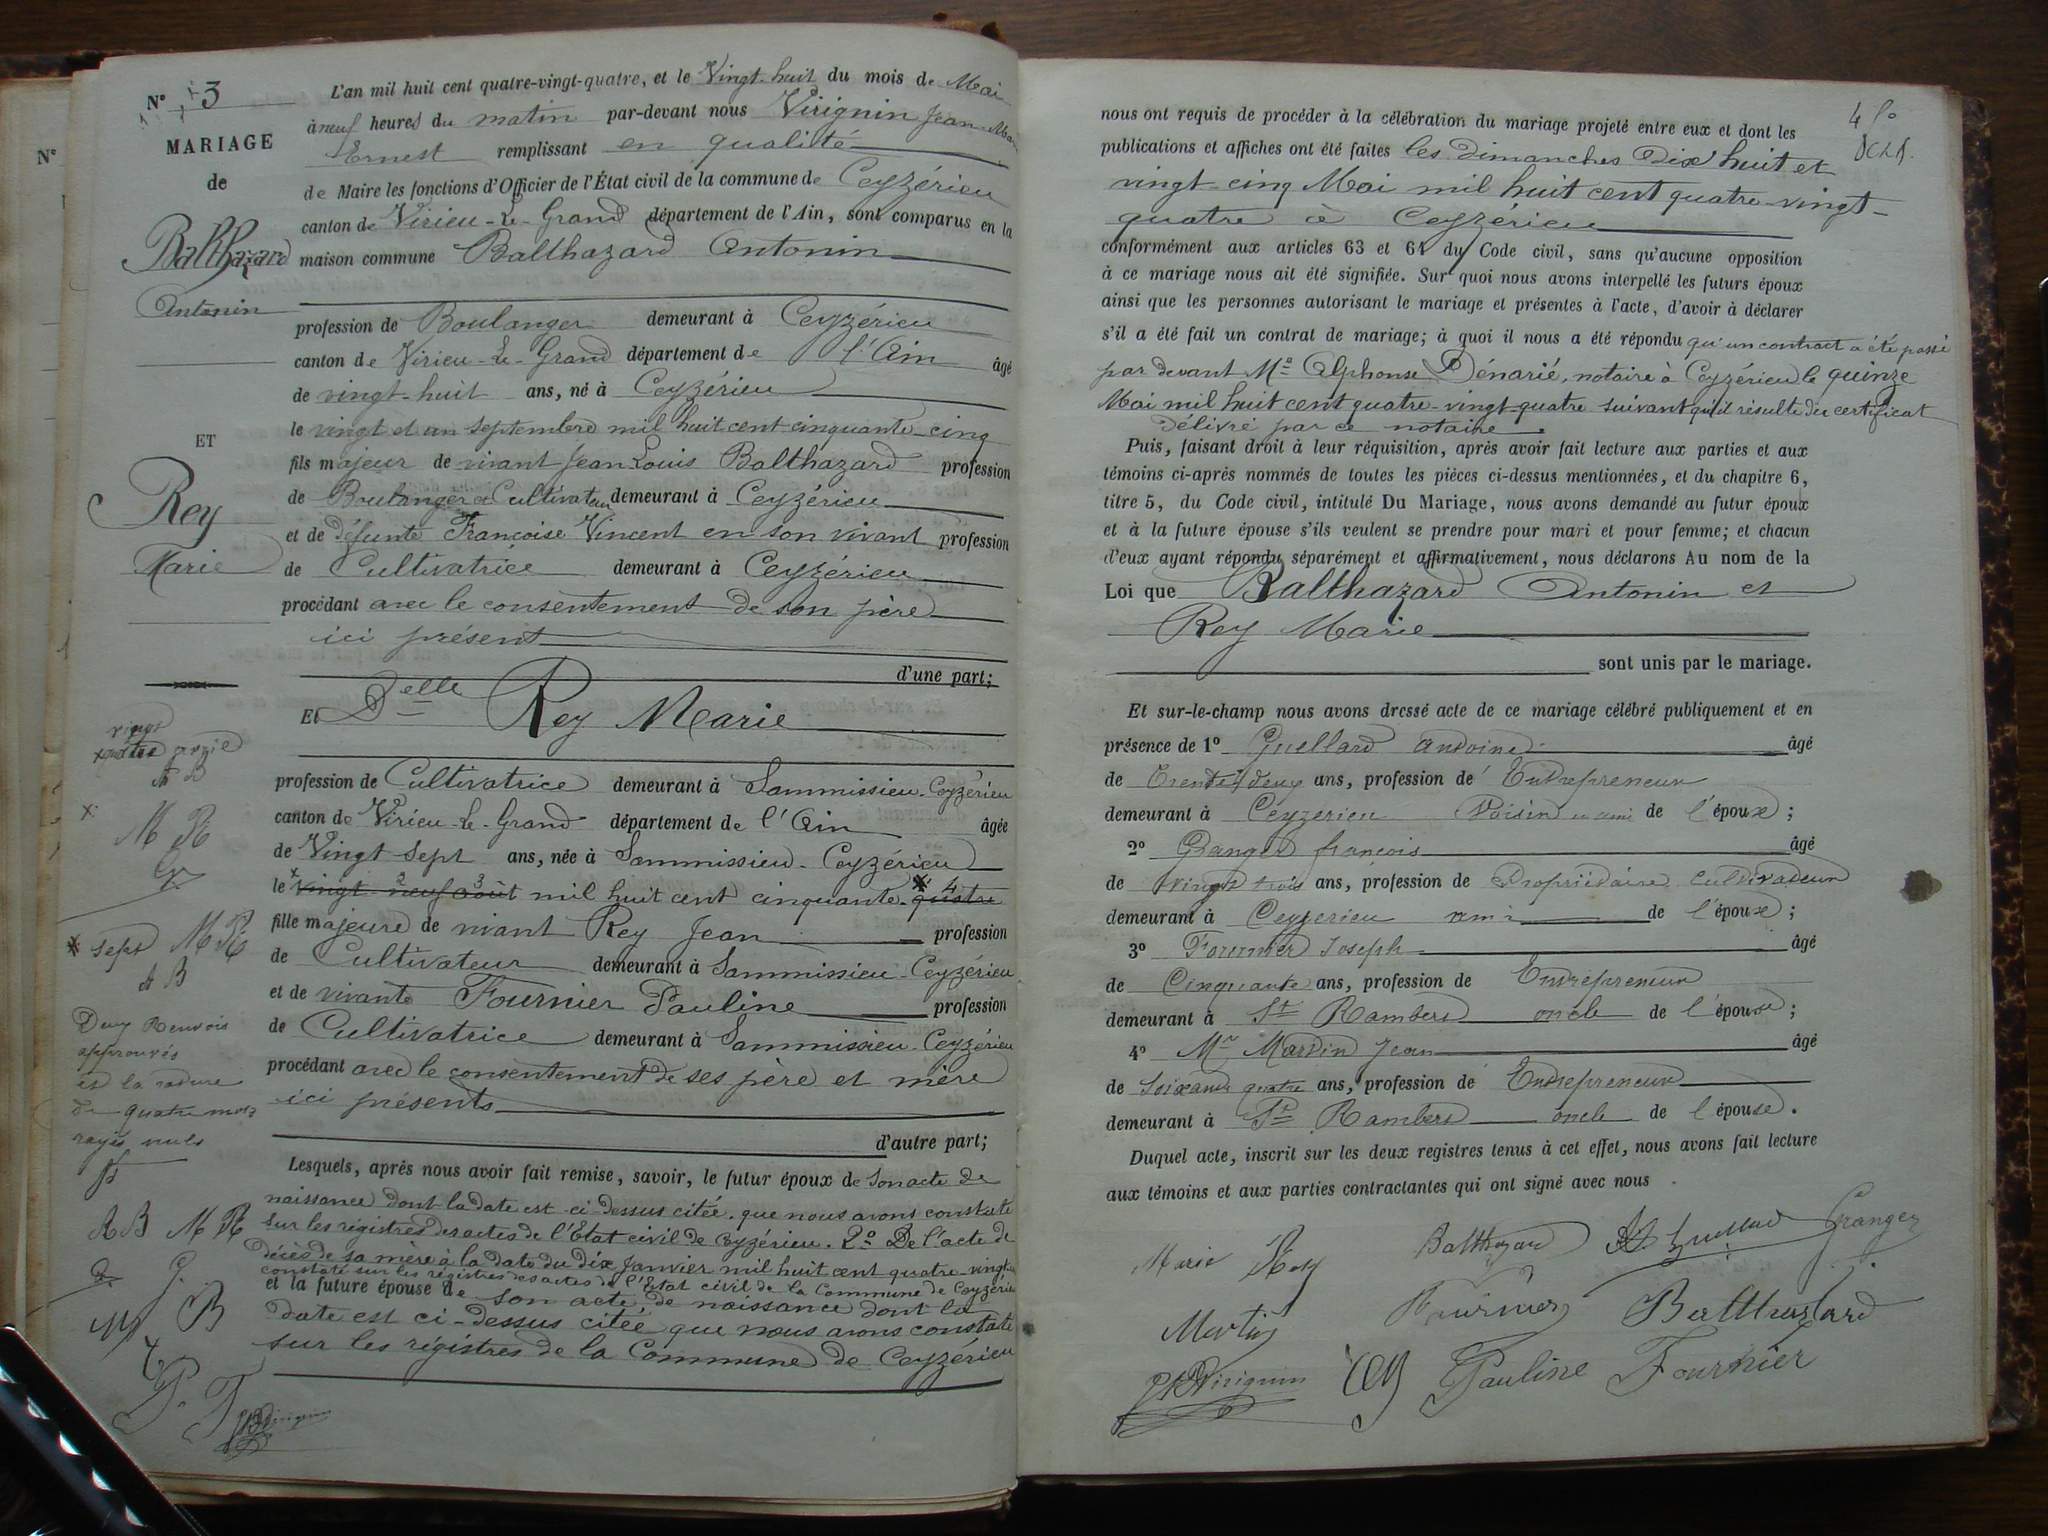 Nº 3
MARIAGE
de
Balthazard
Antonin
ET
Rey
Marie
vingt
quatre avril
A B
x
M R
x sept M R
A B
Deux Renvois
approuvés
et la radure
de quatre mots
rayés nuls
A B M R
G.
B
P. F
Nº
L'an mil huit cent quatre-vingt-quatre, et le Vingt-huit du mois de Mai
à neuf heures du matin par-devant nous Virignin Jean-Marie
Ernest remplissant en qualité
de Maire les fonctions d'Officier de l'État civil de la commune de Ceyzérieu
canton de Virieu-Le-Grand département de l'Ain, sont comparus en la
maison commune Balthazard Antonin
profession de Boulanger demeurant à Ceyzérieu
canton de Virieu-Le-Grand département de l'Ain âgé
de vingt-huit ans, né à Ceyzérieu
le vingt et un septembre mil huit cent cinquante-cinq
fils majeur de vivant Jean Louis Balthazard profession
de Boulanger et Cultivateur demeurant à Ceyzérieu
et de défunte Francoise Vincent en son vivant profession
de Cultivatrice demeurant à Ceyzérieu
procédant avec le consentement de son père
ici présent
d'une part;
Et Delle Rey Marie
profession de Cultivatrice demeurant à Sammissieu-Ceyzérieu
canton de Virieu-Le-Grand département de l'Ain âgée
de Vingt sept ans, née à Sammissieu-Ceyzérieu
le x vingt neuf août mil huit cent cinquante-quatre
fille majeure de vivant Rey Jean profession
de Cultivateur demeurant à Sammissieu-Ceyzérieu
et de vivante Fournier Pauline profession
de Cultivatrice demeurant à Sammissieu-Ceyzérieu
procédant avec le consentement de ses père et mère
ici présents
d'autre part;
Lesquels, après nous avoir fait remise, savoir, le futur époux de son acte de
naissance dont la date est ci-dessus citée. que nous avons constaté
sur les régistres des actes de l'Etat civil de Ceyzérieu. 2º De l'acte de
décès de sa mère à la date du dix Janvier mil huit cent quatre-vingt-
constaté sur les régistres des actes de l'Etat civil de la Commune de Ceyzérieu
et la future épouse de son acte de naissance dont la
date est ci-dessus citée que nous avons constaté
sur les régistres de la Commune de Ceyzérieu
nous ont requis de procéder à la célébration du mariage projeté entre eux et dont les
publications et affiches ont été faites les Dimanches Dix huit et
vingt-cinq Mai mil huit cent quatre-vingt-
quatre à Ceyzérieu
conformément aux articles 63 et 64 du Code civil, sans qu'aucune opposition
à ce mariage nous ait été signifiée. Sur quoi nous avons interpellé les futurs époux
ainsi que les personnes autorisant le mariage et présentes à l'acte, d'avoir à déclarer
s'il a été fait un contrat de mariage; à quoi il nous a été répondu qu'un contract a été passé
par devant Me Alphonse Dénarié, notaire à Ceyzérieu le quinze
Mai mil huit cent quatre-vingt-quatre suivant qu'il résulte du certificat
délivré par ce notaire.
Puis, faisant droit à leur réquisition, après avoir fait lecture aux parties et aux
témoins ci-après nommés de toutes les pièces ci-dessus mentionnées, et du chapitre 6,
titre 5, du Code civil, intitulé Du Mariage, nous avons demandé au futur époux
et à la future épouse s'ils veulent se prendre pour mari et pour femme; et chacun
d'eux ayant répondu séparément et affirmativement, nous déclarons Au nom de la
Loi que Balthazard Antonin et
Rey Marie
sont unis par le mariage.
Et sur-le-champ nous avons dressé acte de ce mariage célébré publiquement et en
présence de 1º Guellard Antoine âgé
de Trente deux ans, profession de Entrepreneur
demeurant à Ceyzerieu Voisin de l'épouse;
2º Granger françois âgé
de vingt trois ans, profession de Propriétaire cultivateur
demeurant à Ceyzerieu ami de l'épouse;
3º Fournier Joseph âgé
de Cinquante ans, profession de Entrepreneur
demeurant à St Rambert oncle de l'épouse;
4º Mr Martin Jean âgé
de Soixante quatre ans, profession de Entrepreneur
demeurant à St Rambert oncle de l'épouse.
Duquel acte, inscrit sur les deux registres tenus à cet effet, nous avons fait lecture
aux témoins et aux parties contractantes qui ont signé avec nous
Marie Rey Balthazard Granger
Martin Fournier Balthazard
Virignin Rey Pauline Fournier